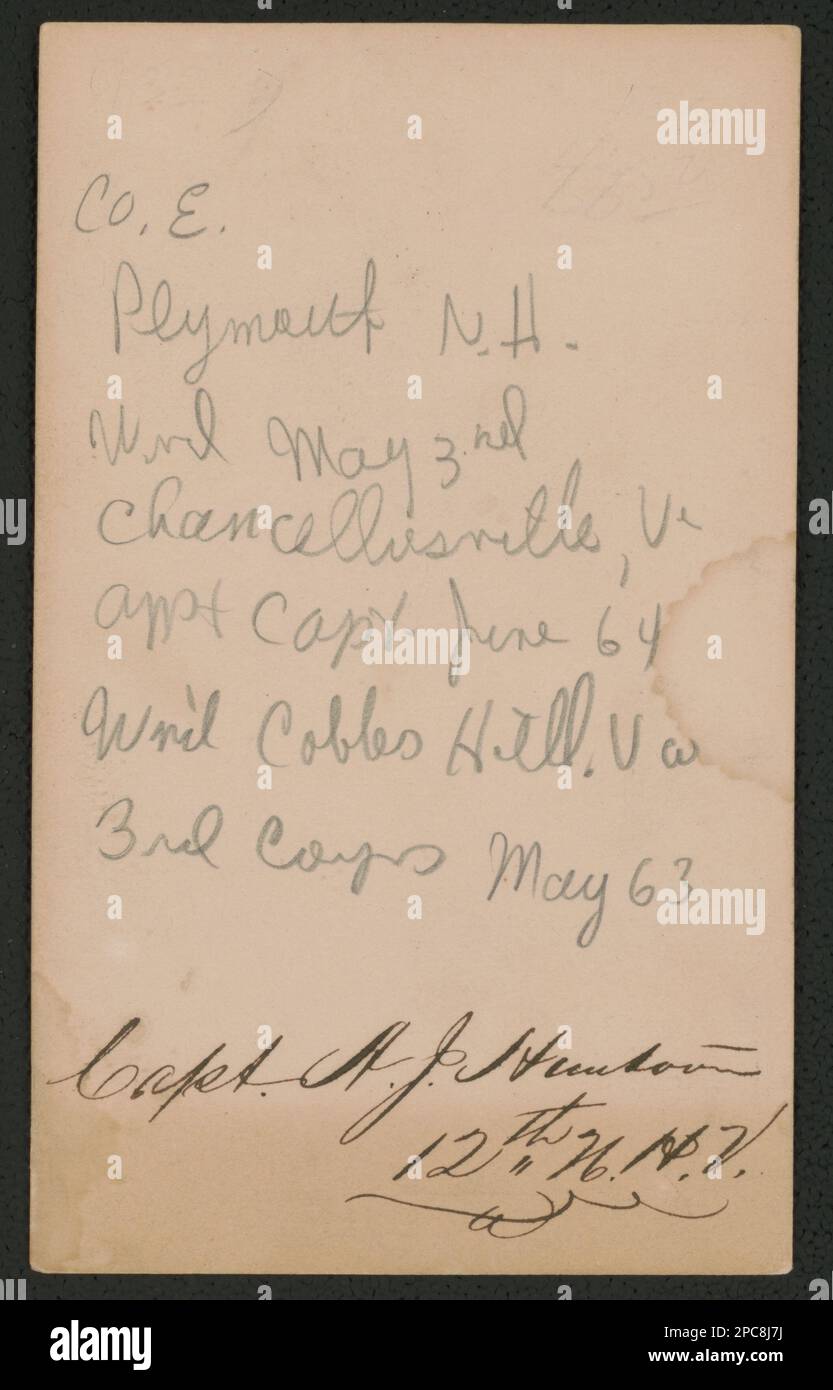 Co. E.
Plymouth N.H.
Wnd May 3nd
Chancellorsville, Va
appt Capt June 64
Wn'd Cobbs Hill. Va
3rd Corps May 63
Capt. A. J. Huntoon
12th N. H. V.
alamy
Image ID: 2PC8J7J
www.alamy.com